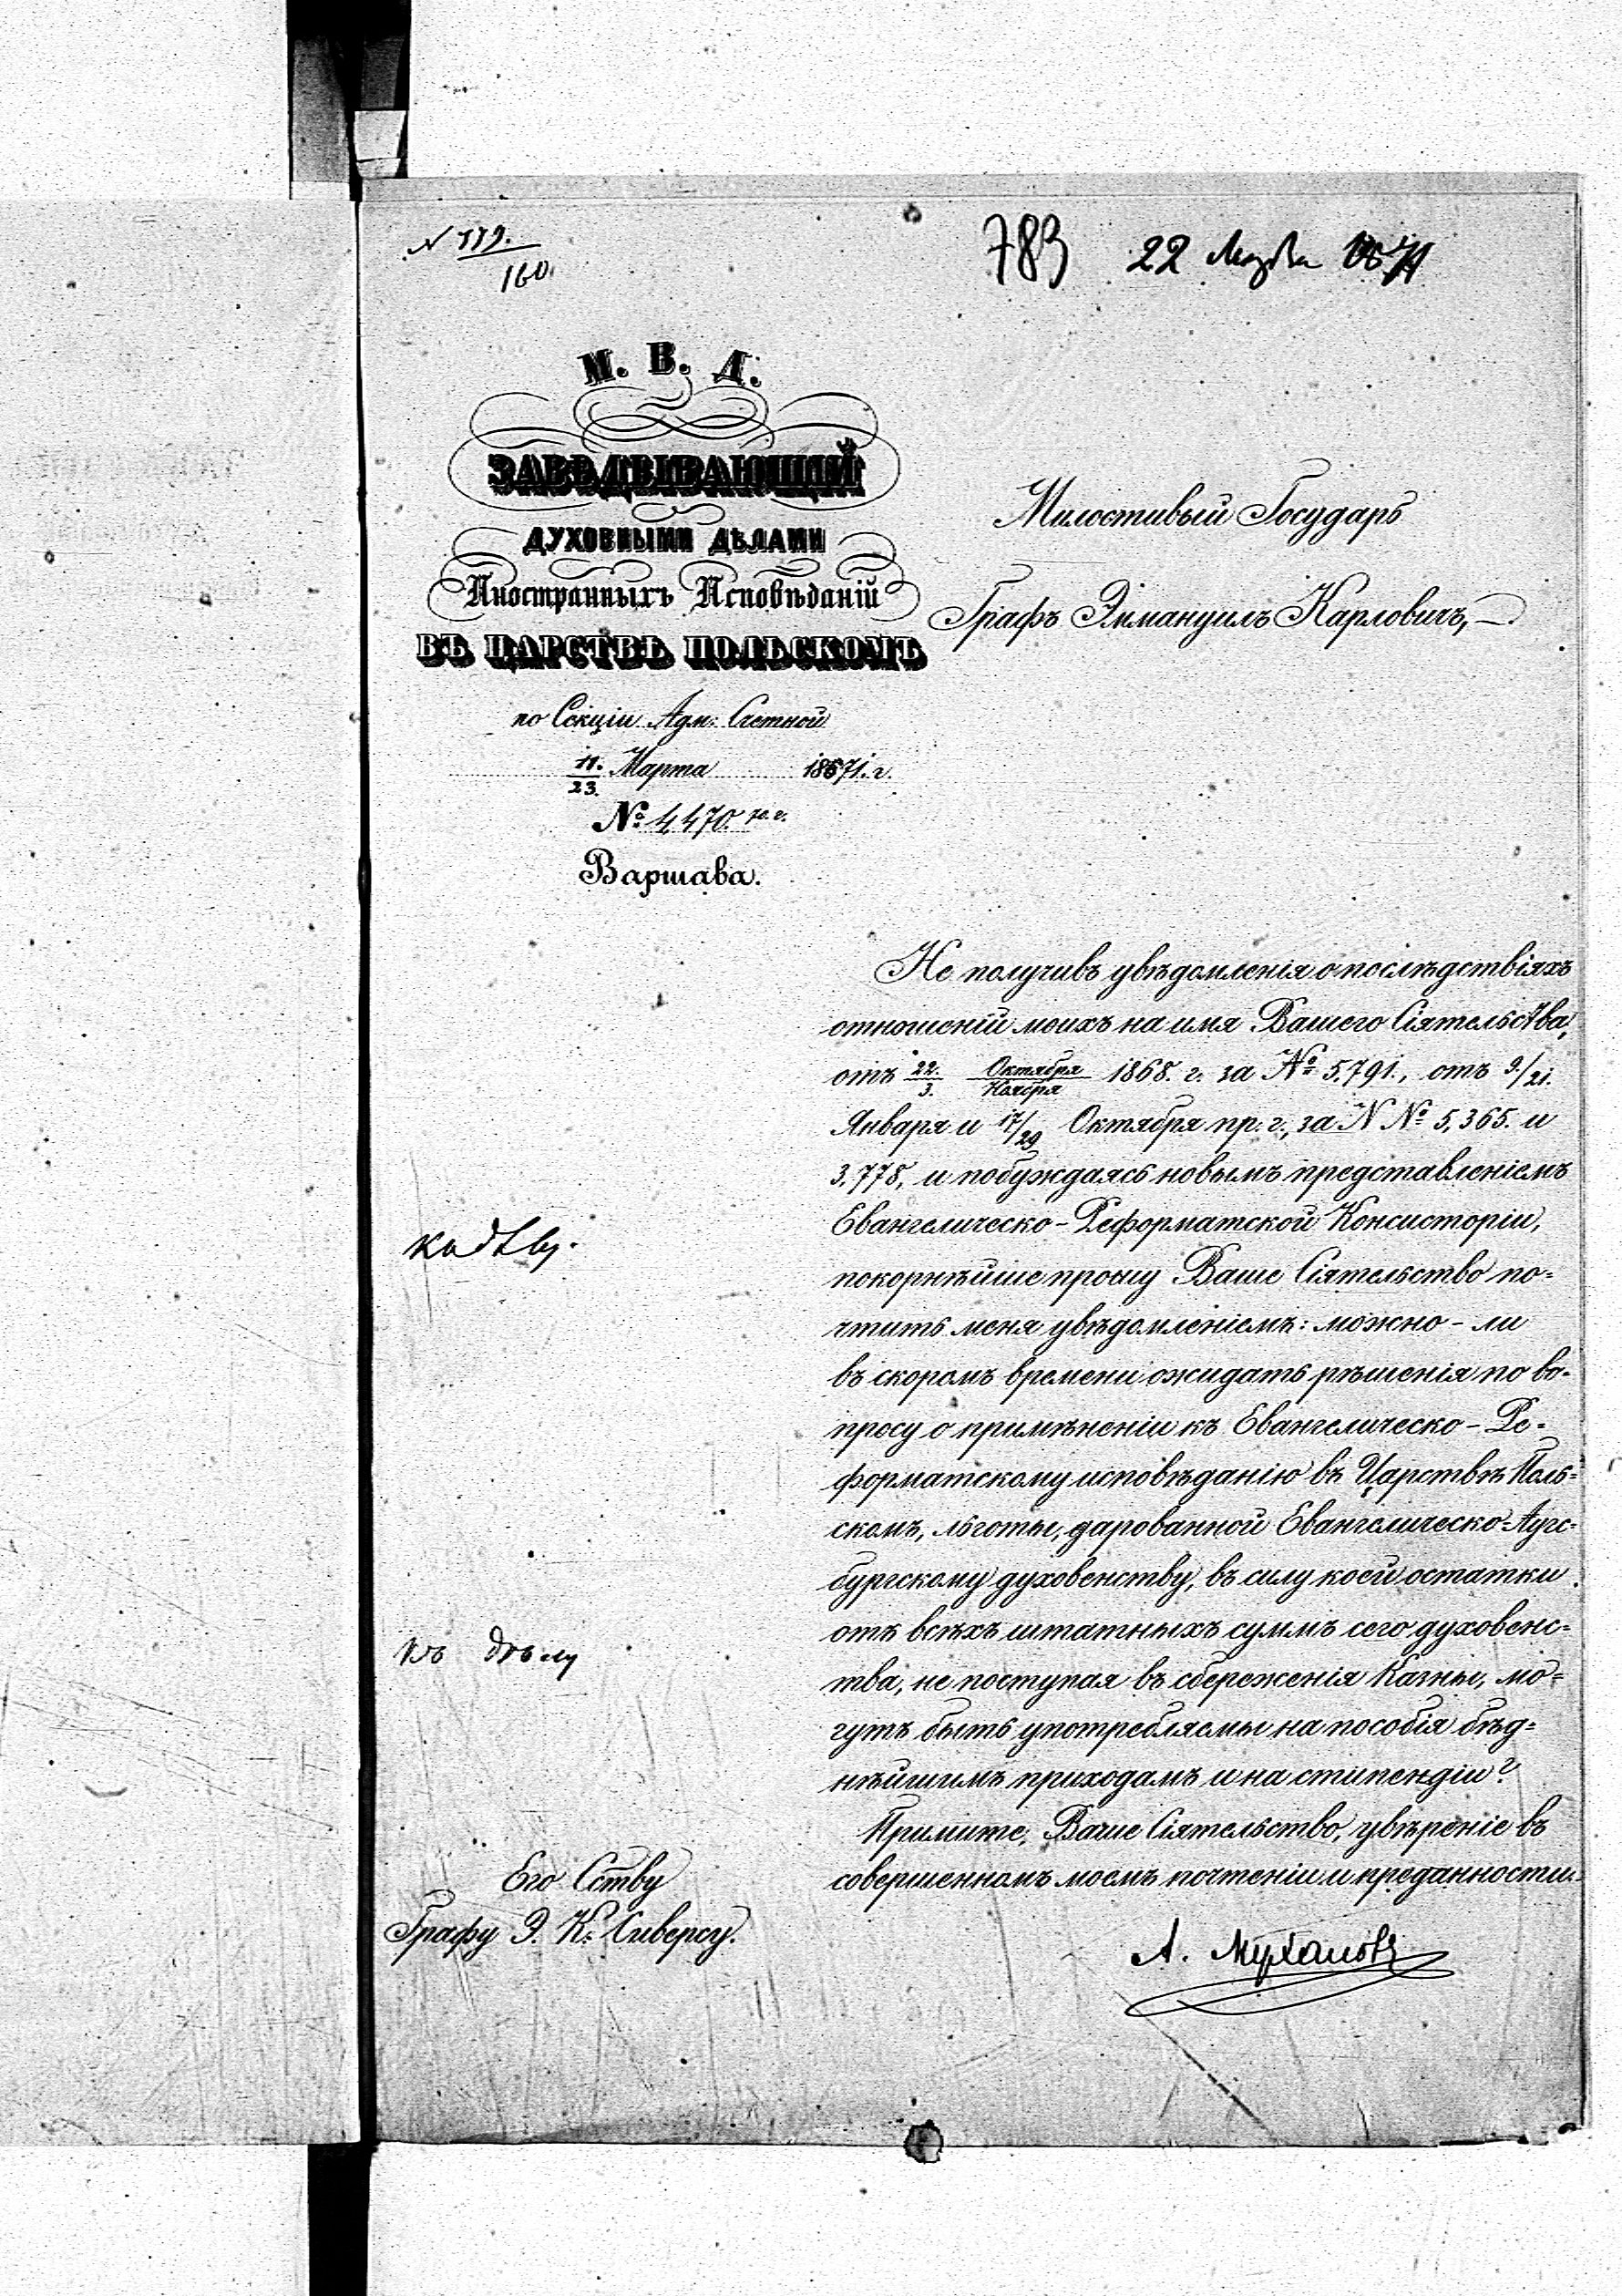 N 119.
160.
783
22 Марта 1871
М. В. Д.
ЗАВѢДЫВАЮЩІЙ
ДУХОВНЫМИ ДѢЛАМИ
Иностранныхъ Исповѣданій
ВЪ ЦАРСТВѢ ПОЛЬСКОМЪ
по Секціи Адм: Счетной
11./23. Марта 1871. г.
№ 4,470.
Варшава.
Милостивый Государь
Графъ Эммануилъ Карловичъ,
Не получивъ увѣдомленія о послѣдствіяхъ
отношеній моихъ на имя Вашего Сіятельства,
отъ 22./3. Октября/Ноября 1868. г. за № 5,791., отъ 9./21.
Января и 17/29 Октября пр. г., за N № 5,365. и
3,778, и побуждаясь новымъ представленіемъ
Евангелическо-Реформатской Консисторіи,
покорнѣйше прошу Ваше Сіятельство по=
чтить меня увѣдомленіемъ: можно-ли
въ скоромъ времени ожидать рѣшенія по во=
просу о примѣненіи къ Евангелическо-Ре=
форматскому исповѣданію въ Царствѣ Поль=
скомъ, льготы, дарованной Евангелическо-Аугс=
бургскому духовенству, въ силу коей остатки
отъ всѣхъ штатныхъ суммъ сего духовенс=
тва, не поступая въ сбереженія Казны, мо=
гутъ быть употребляемы на пособія бѣд=
нѣйшимъ приходамъ и на стипендіи?
Примите, Ваше Сіятельство, увѣреніе въ
совершенномъ моемъ почтеніи и преданности.
А. Мухановъ
къ дѣлу.
къ дѣлу
Его Ству
Графу Э. К. Сиверсу.